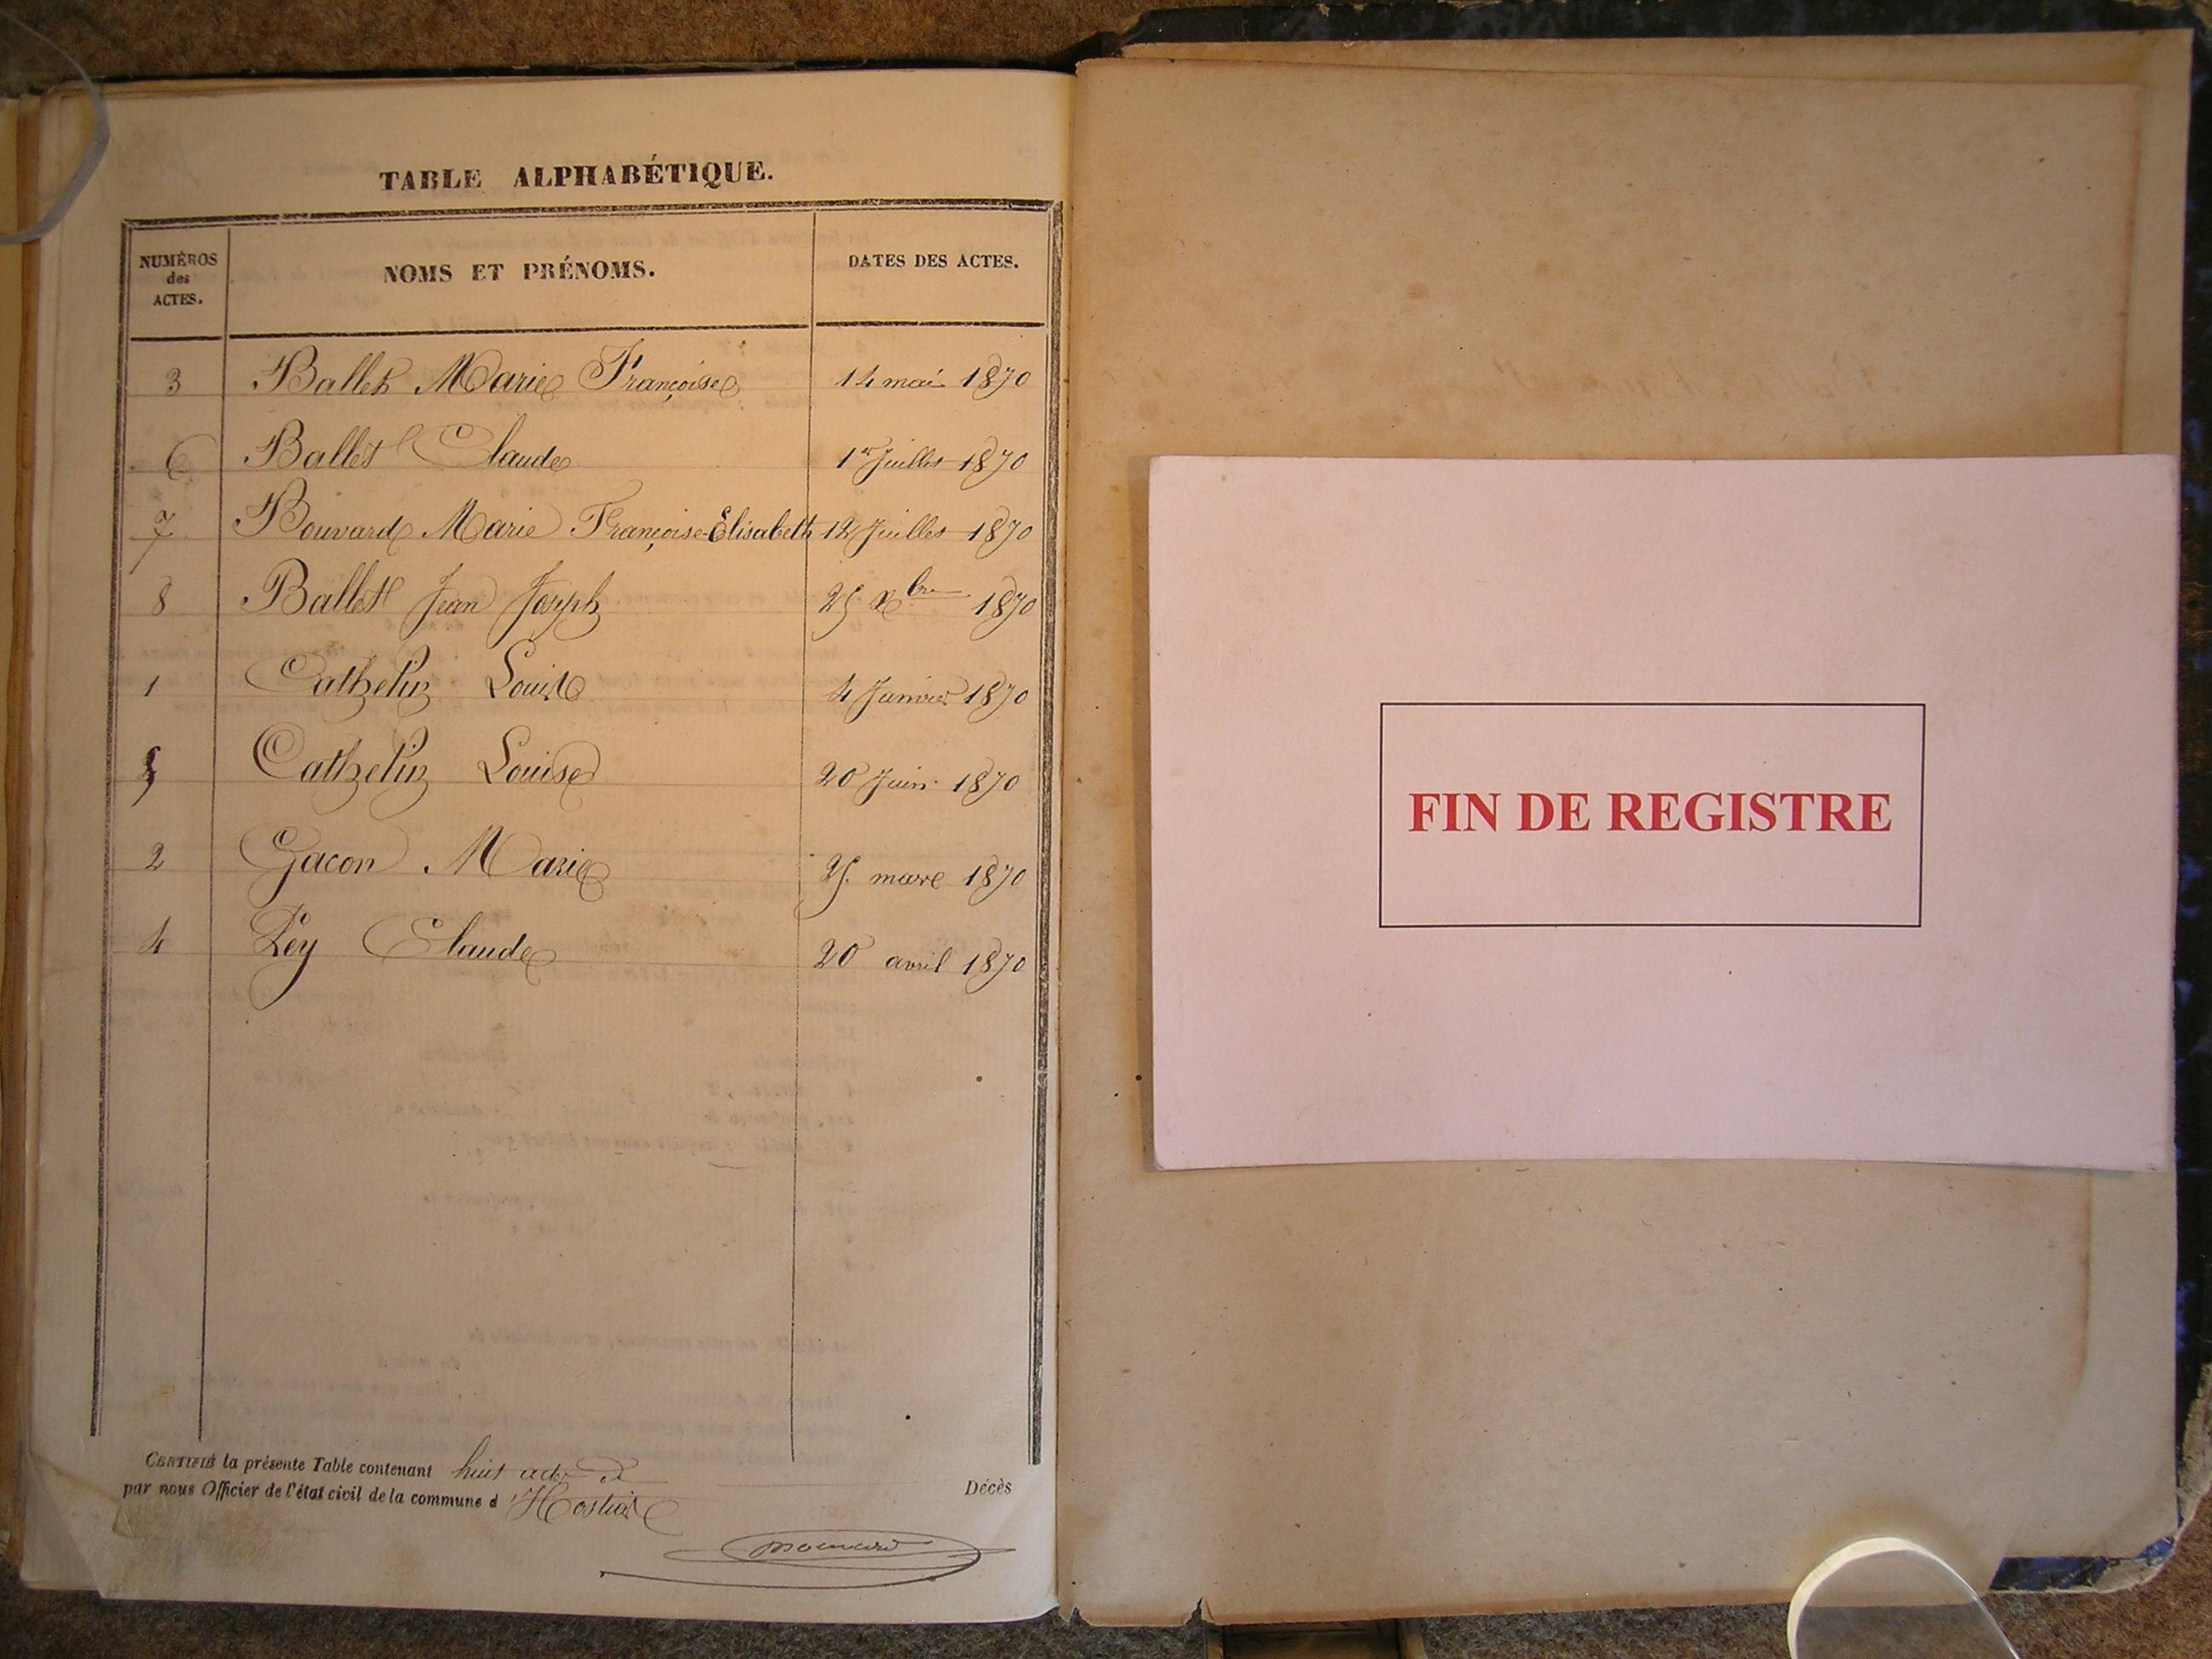 TABLE ALPHABÉTIQUE.
NUMÉROS des ACTES. NOMS ET PRÉNOMS. DATES DES ACTES.
3 Ballet Marie Françoise 14 mai 1870
6 Ballet Claude 1er Juillet 1870
7 Bouvard Marie Françoise-Elisabeth 12 Juillet 1870
8 Ballet Jean Joseph 25 Xbre 1870
1 Cathelin Louise 4 Janvier 1870
5 Cathelin Louise 20 Juin 1870
2 Gacon Marie 25 mars 1870
4 Rey Claude 20 avril 1870
CERTIFIÉ la présente Table contenant huit actes de Décès
par nous Officier de l'état civil de la commune d'Hostias
FIN DE REGISTRE